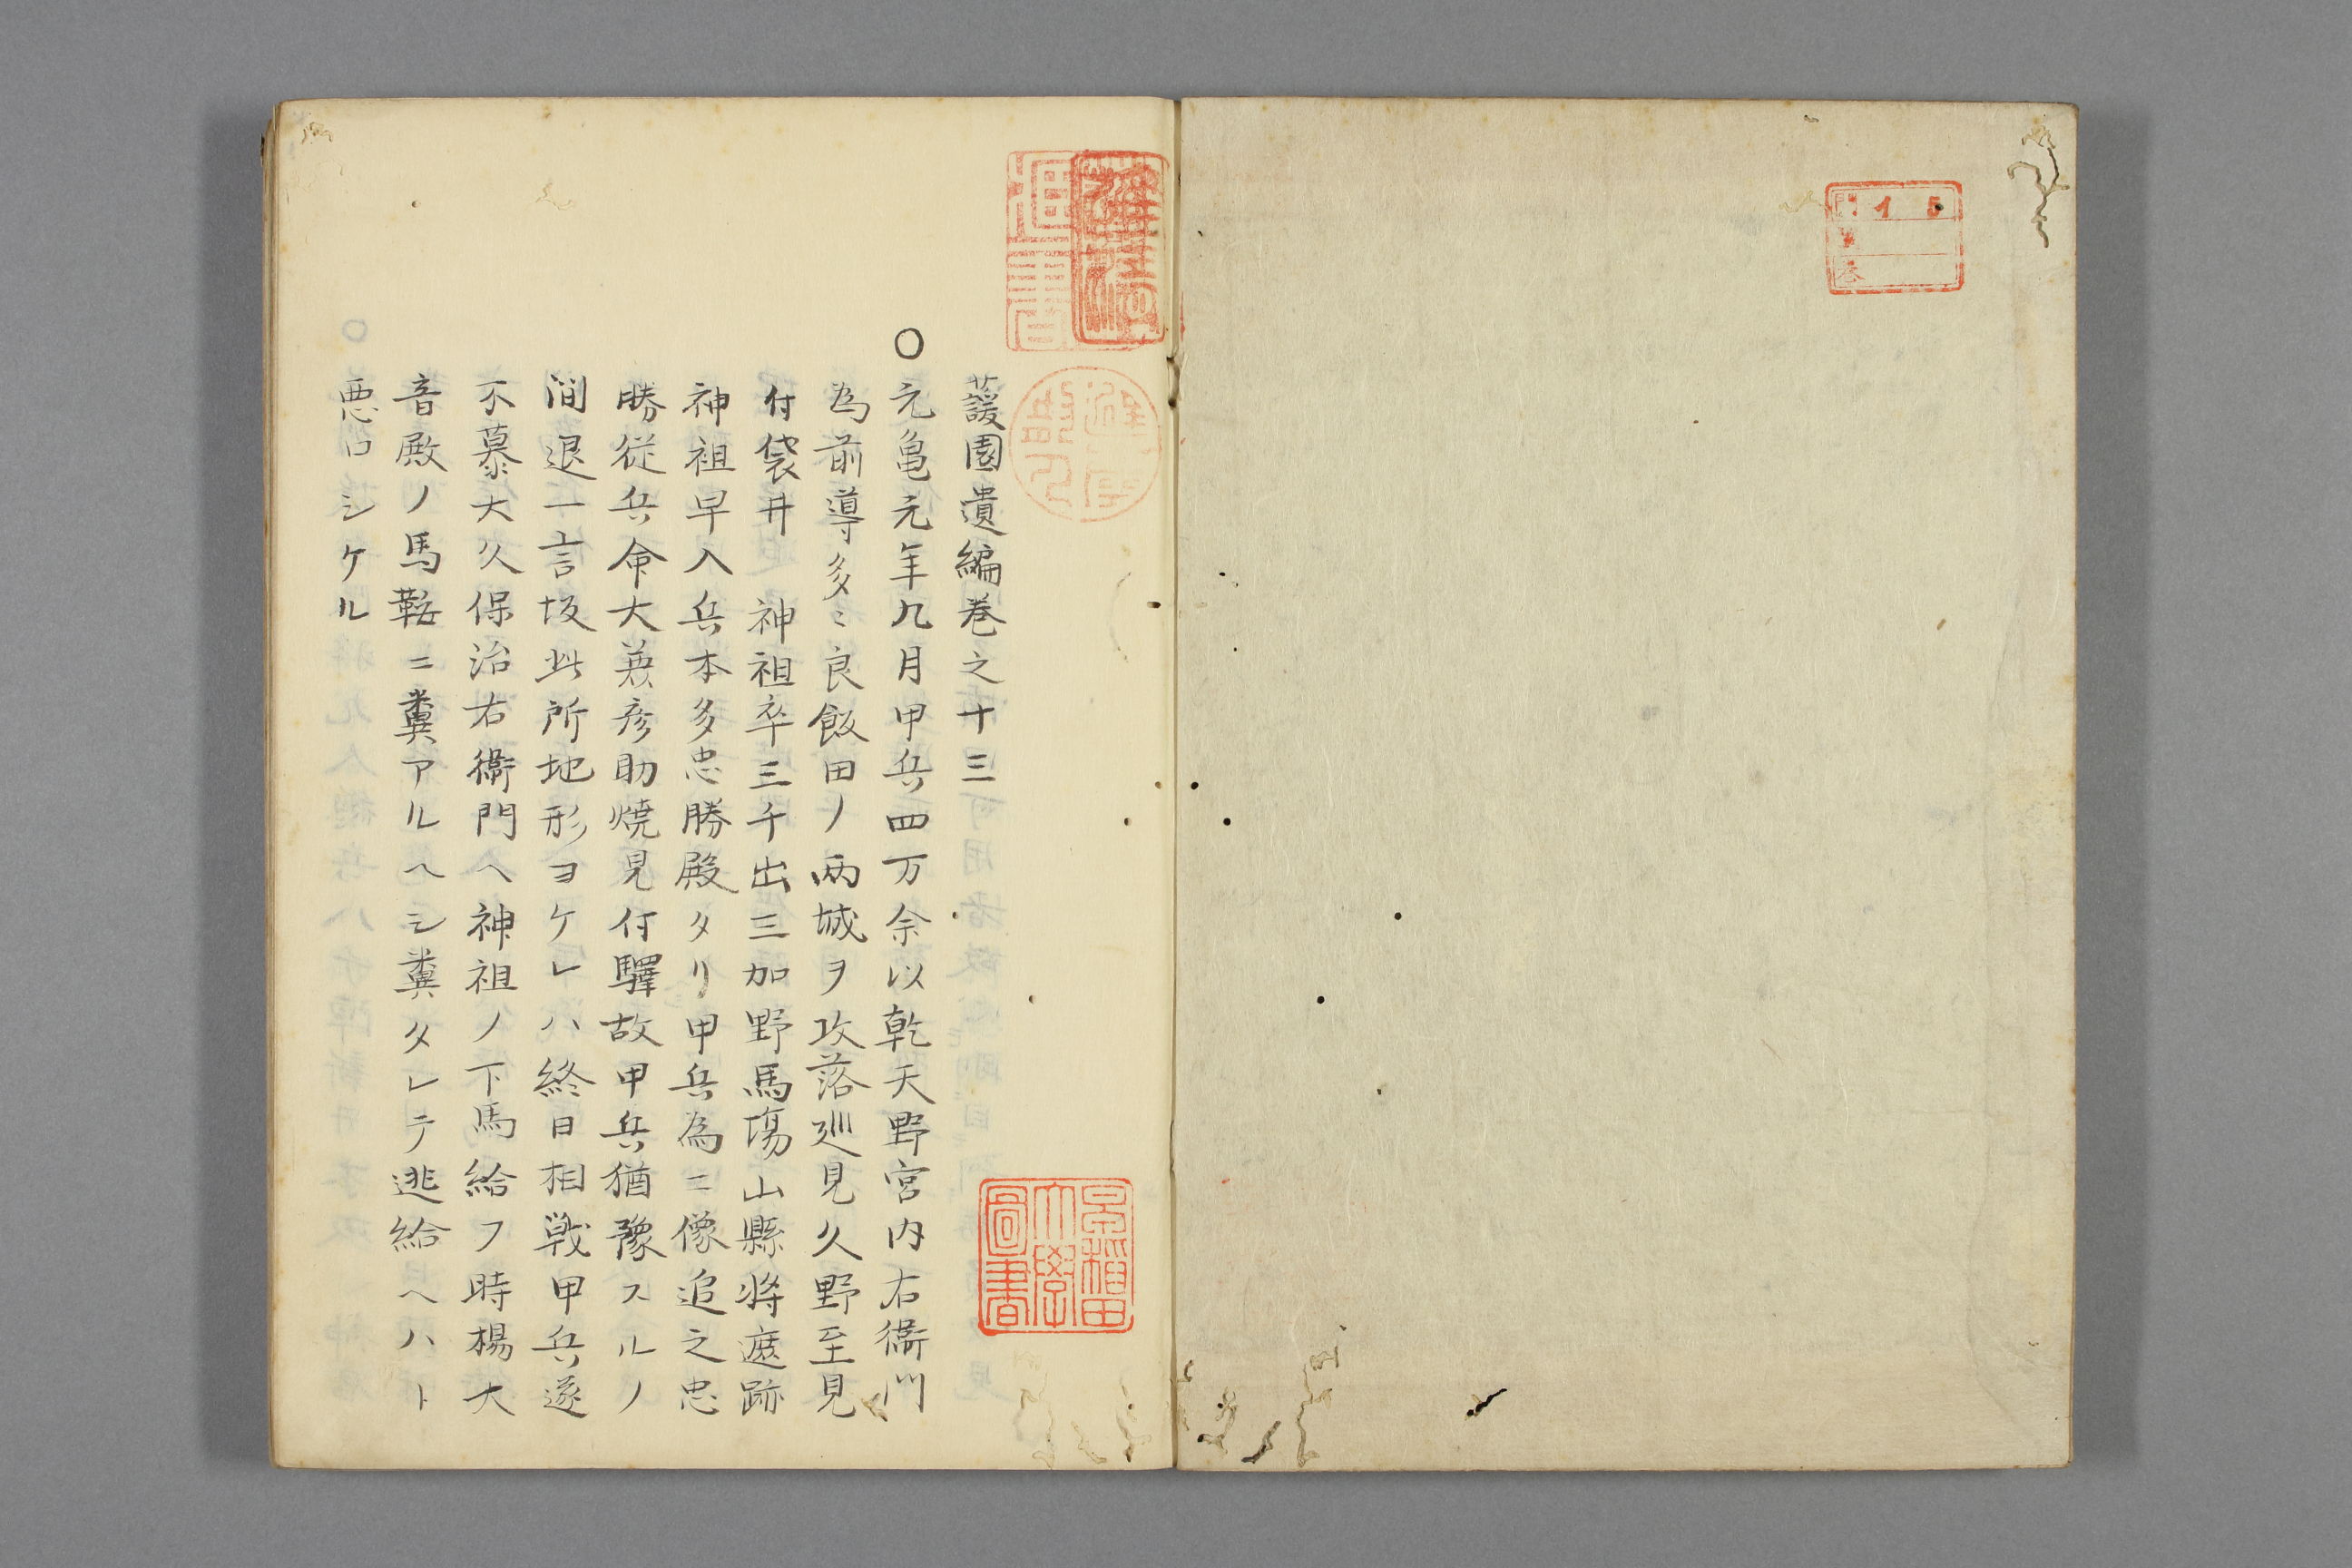 5
1
門
巻
蘐園遺編巻之十三
〇元亀元年九月甲兵四万余以乾天野宮内右衛門
為前導多〻良飯田ノ両城ヲ攻落廵見久野至見
付袋井　神祖卒三千出三加野馬傷山縣将遮跡
神祖早入兵本多忠勝殿タリ甲兵為ニ像追之忠
勝従兵命大兼彦助焼見付驛故甲兵猶豫スルノ
間退一言坂此所地形ヨケレハ終日相戦甲兵遂
不慕大久保治右衛門ヘ神祖ノ下馬給フ時楊大
音殿ノ馬鞍ニ糞アルヘシ糞タレテ逃給ヘハト
悪口シケル
早稲田大學圖書